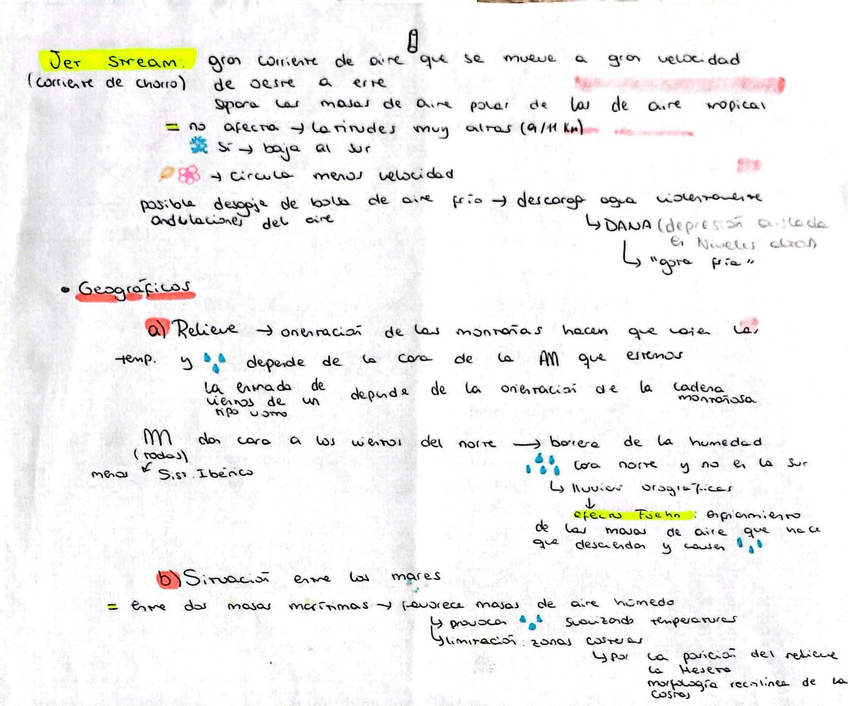 Jet Stream: gran corriente de aire que se mueve a gran velocidad
(corriente de chorro) de oeste a este
Spara las masas de aire polar de las de aire tropical
= no afecta → latitudes muy altas (9/11 Km)
Sí → baja al sur
→ circula menos velocidad
posible desgaje de bolsa de aire frío → descarga agua violentamente
ondulaciones del aire
↳ DANA (depresión aislada
en Niveles altos)
↳ "gota fría"
• Geográficos
a) Relieve → orientación de las montañas hacen que varíen la,
temp. y depende de la cara de la que estemos
la entrada de
vientos de un
tipo u otro
depende de la orientación de la cadena
montañosa
dan cara a los vientos del norte → barrera de la humedad
(todas)
menos Sist. Ibérico
cara norte y no en la sur
↳ lluvias orográficas
↓
efecto Foehn: enfriamiento
de las masas de aire que hace
que desciendan y causen
b) Situación entre los mares
= entre dos masas marítimas → favorece masas de aire húmedo
↳ provoca suavizando temperaturas
↳ limitación: zonas costeras
↳ por la posición del relieve
la Meseta
morfología rectilínea de la
costas